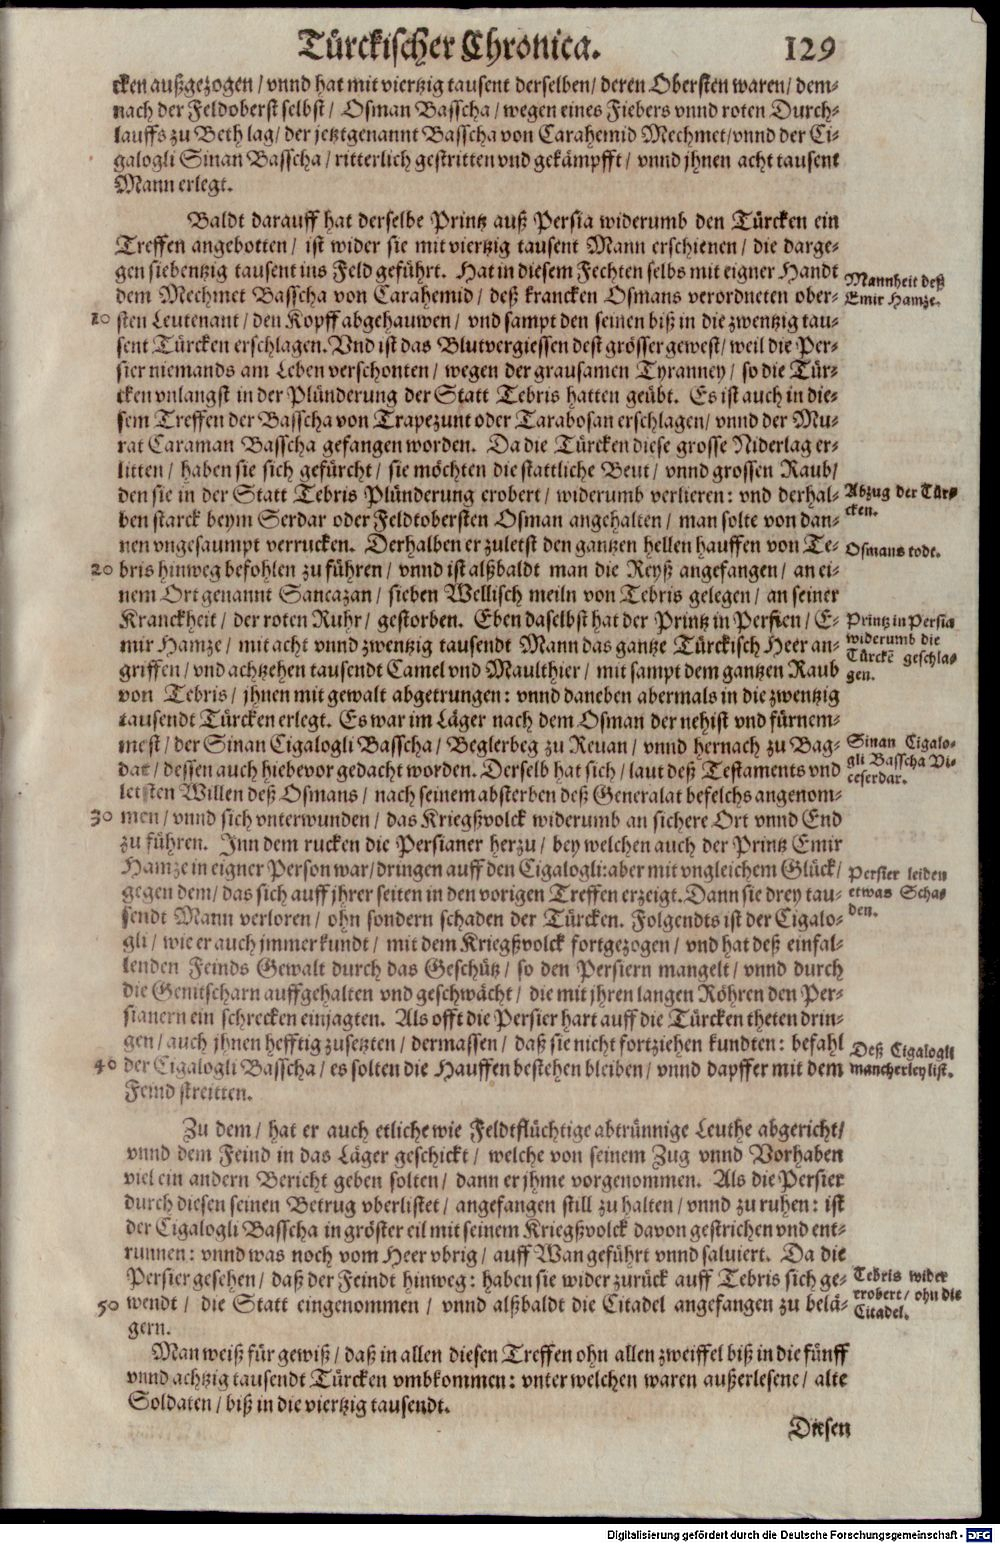 Türckischer Chronica. 129
cken außgezogen / vnnd hat mit viertzig tausent derselben / deren Obersten waren / dem-
nach der Feldoberst selbst / Osman Basscha / wegen eines Fiebers vnnd roten Durch-
lauffs zu Beth lag / der jetztgenannt Basscha von Carahemid Mechmet / vnnd der Ci-
galogli Sinan Basscha / ritterlich gestritten vnd gekämpfft / vnnd jhnen acht tausent
Mann erlegt.
Baldt darauff hat derselbe Printz auß Persia widerumb den Türcken ein
Treffen angebotten / ist wider sie mit viertzig tausent Mann erschienen / die darge-
gen siebentzig tausent ins Feld geführt. Hat in diesem Fechten selbs mit eigner Handt
Mannheit deß
Emir Hamze.
dem Mechmet Basscha von Carahemid / deß krancken Osmans verordneten ober-
10 sten Leutenant / den Kopff abgehauwen / vnd sampt den seinen biß in die zwentzig tau-
sent Türcken erschlagen. Vnd ist das Blutvergiessen dest grösser gewest / weil die Per-
sier niemands am Leben verschonten / wegen der grausamen Tyranney / so die Tür-
cken vnlangst in der Plünderung der Statt Tebris hatten geübt. Es ist auch in die-
sem Treffen der Basscha von Trapezunt oder Tarabosan erschlagen / vnnd der Mu-
rat Caraman Basscha gefangen worden. Da die Türcken diese grosse Niderlag er-
litten / haben sie sich gefürcht / sie möchten die stattliche Beut / vnnd grossen Raub /
den sie in der Statt Tebris Plünderung erobert / widerumb verlieren: vnd derhal-
Abzug der Tür-
cken.
ben starck beym Serdar oder Feldtobersten Osman angehalten / man solte von dan-
nen vngesaumpt verrucken. Derhalben er zuletst den gantzen hellen hauffen von Te-
Osmans todt.
20 bris hinweg befohlen zu führen / vnnd ist alßbaldt man die Reyß angefangen / an ei-
nem Ort genannt Sancazan / sieben Wellisch meiln von Tebris gelegen / an seiner
Kranckheit / der roten Ruhr / gestorben. Eben daselbst hat der Printz in Persien / E-
Printz in Persia
widerumb die
Türckē geschla-
gen.
mir Hamze / mit acht vnnd zwentzig tausendt Mann das gantze Türckisch Heer an-
griffen / vnd achtzehen tausendt Camel vnd Maulthier / mit sampt dem gantzen Raub
von Tebris / jhnen mit gewalt abgetrungen: vnnd daneben abermals in die zwentzig
tausendt Türcken erlegt. Es war im Läger nach dem Osman der nehist vnd fürnem-
mest / der Sinan Cigalogli Basscha / Beglerbeg zu Reuan / vnnd hernach zu Bag-
Sinan Cigalo-
gli Basscha Vi-
ceserdar.
dat / dessen auch hiebevor gedacht worden. Derselb hat sich / laut deß Testaments vnd
letsten Willen deß Osmans / nach seinem absterben deß Generalat befelchs angenom-
30 men / vnnd sich vnterwunden / das Kriegßvolck widerumb an sichere Ort vnnd End
zu führen. Inn dem rucken die Persianer herzu / bey welchen auch der Printz Emir
Hamze in eigner Person war / dringen auff den Cigalogli: aber mit vngleichem Glück /
Persier leiden
etwas Scha-
den.
gegen dem / das sich auff jhrer seiten in den vorigen Treffen erzeigt. Dann sie drey tau-
sendt Mann verloren / ohn sondern schaden der Türcken. Folgendts ist der Cigalo-
gli / wie er auch jmmer kundt / mit dem Kriegßvolck fortgezogen / vnd hat deß einfal-
lenden Feinds Gewalt durch das Geschütz / so den Persiern mangelt / vnnd durch
die Genitscharn auffgehalten vnd geschwächt / die mit jhren langen Röhren den Per-
sianern ein schrecken einjagten. Als offt die Persier hart auff die Türcken theten drin-
gen / auch jhnen hefftig zusetzten / dermassen / daß sie nicht fortziehen kundten: befahl
Deß Cigalogli
mancherley list.
40 der Cigalogli Basscha / es solten die Hauffen bestehen bleiben / vnnd dapffer mit dem
Feind streitten.
Zu dem / hat er auch etliche wie Feldtflüchtige abtrünnige Leuthe abgericht /
vnnd dem Feind in das Läger geschickt / welche von seinem Zug vnnd Vorhaben
viel ein andern Bericht geben solten / dann er jhme vorgenommen. Als die Persier
durch diesen seinen Betrug vberlistet / angefangen still zu halten / vnnd zu ruhen: ist
der Cigalogli Basscha in gröster eil mit seinem Kriegßvolck davon gestrichen vnd ent-
runnen: vnnd was noch vom Heer vbrig / auff Wan geführt vnnd saluiert. Da die
Persier gesehen / daß der Feindt hinweg: haben sie wider zurück auff Tebris sich ge-
Tebris wider
erobert / ohn die
Citadel.
50 wendt / die Statt eingenommen / vnnd alßbaldt die Citadel angefangen zu belä-
gern.
Man weiß für gewiß / daß in allen diesen Treffen ohn allen zweiffel biß in die fünff
vnnd achtzig tausendt Türcken vmbkommen: vnter welchen waren außerlesene / alte
Soldaten / biß in die viertzig tausendt.
Diesen
Digitalisierung gefördert durch die Deutsche Forschungsgemeinschaft - DFG